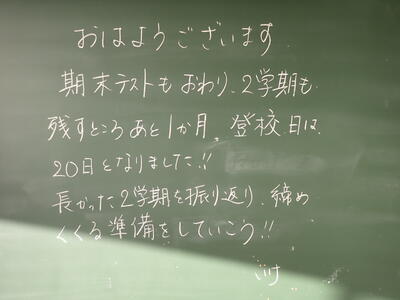 おはようございます
期末テストもおわり、2学期も
残すところあと1か月。登校日は
20日となりました!!
長かった2学期を振り返り、締め
くくる準備をしていこう!!